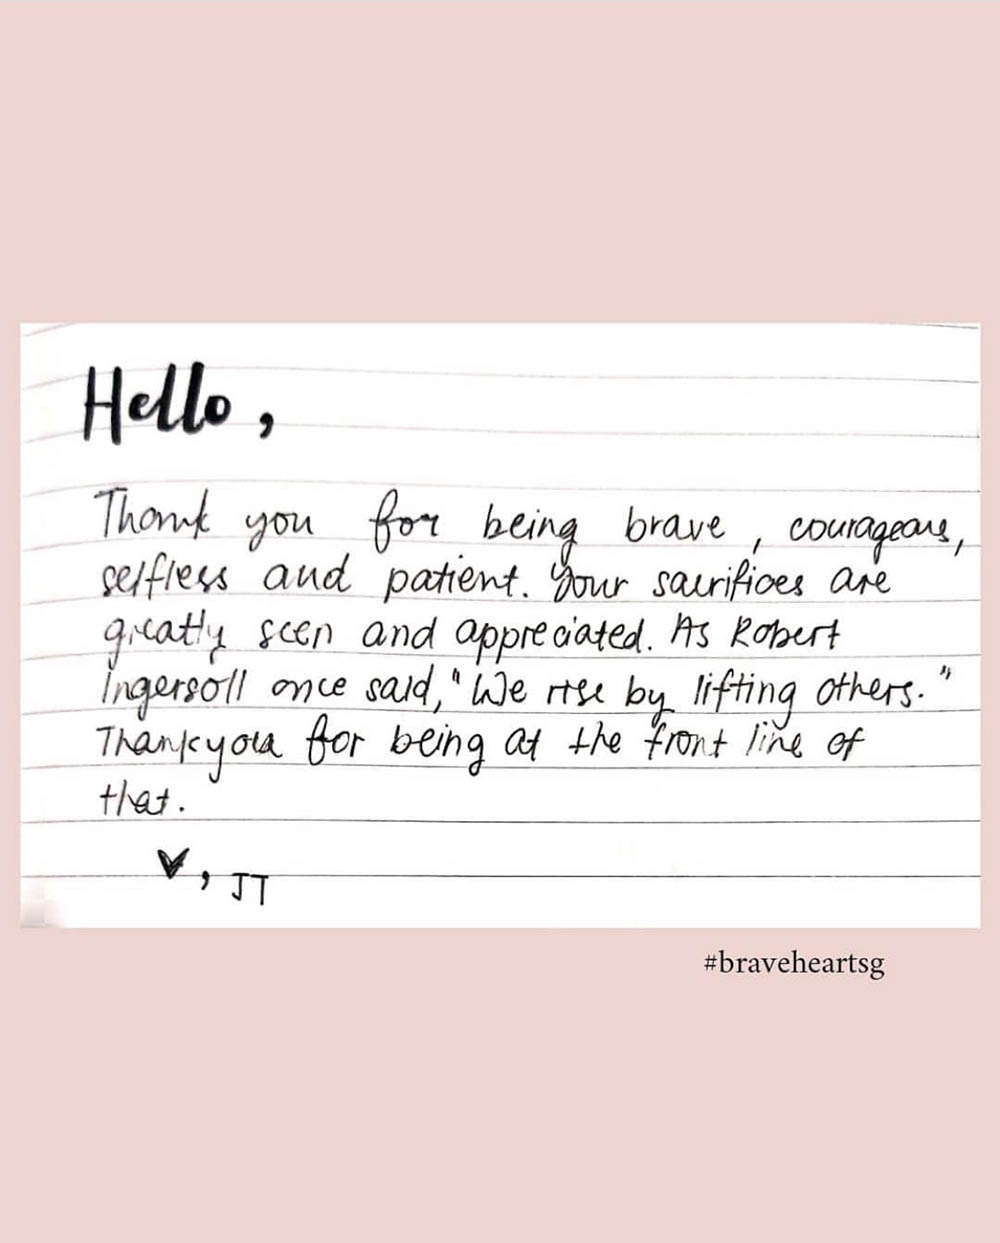 Hello,
Thank you for being brave, courageous,
selfless and patient. Your sacrifices are
greatly seen and appreciated. As Robert
Ingersoll once said, "We rise by lifting others."
Thank you for being at the front line of
that.
♥, JT
#braveheartsg